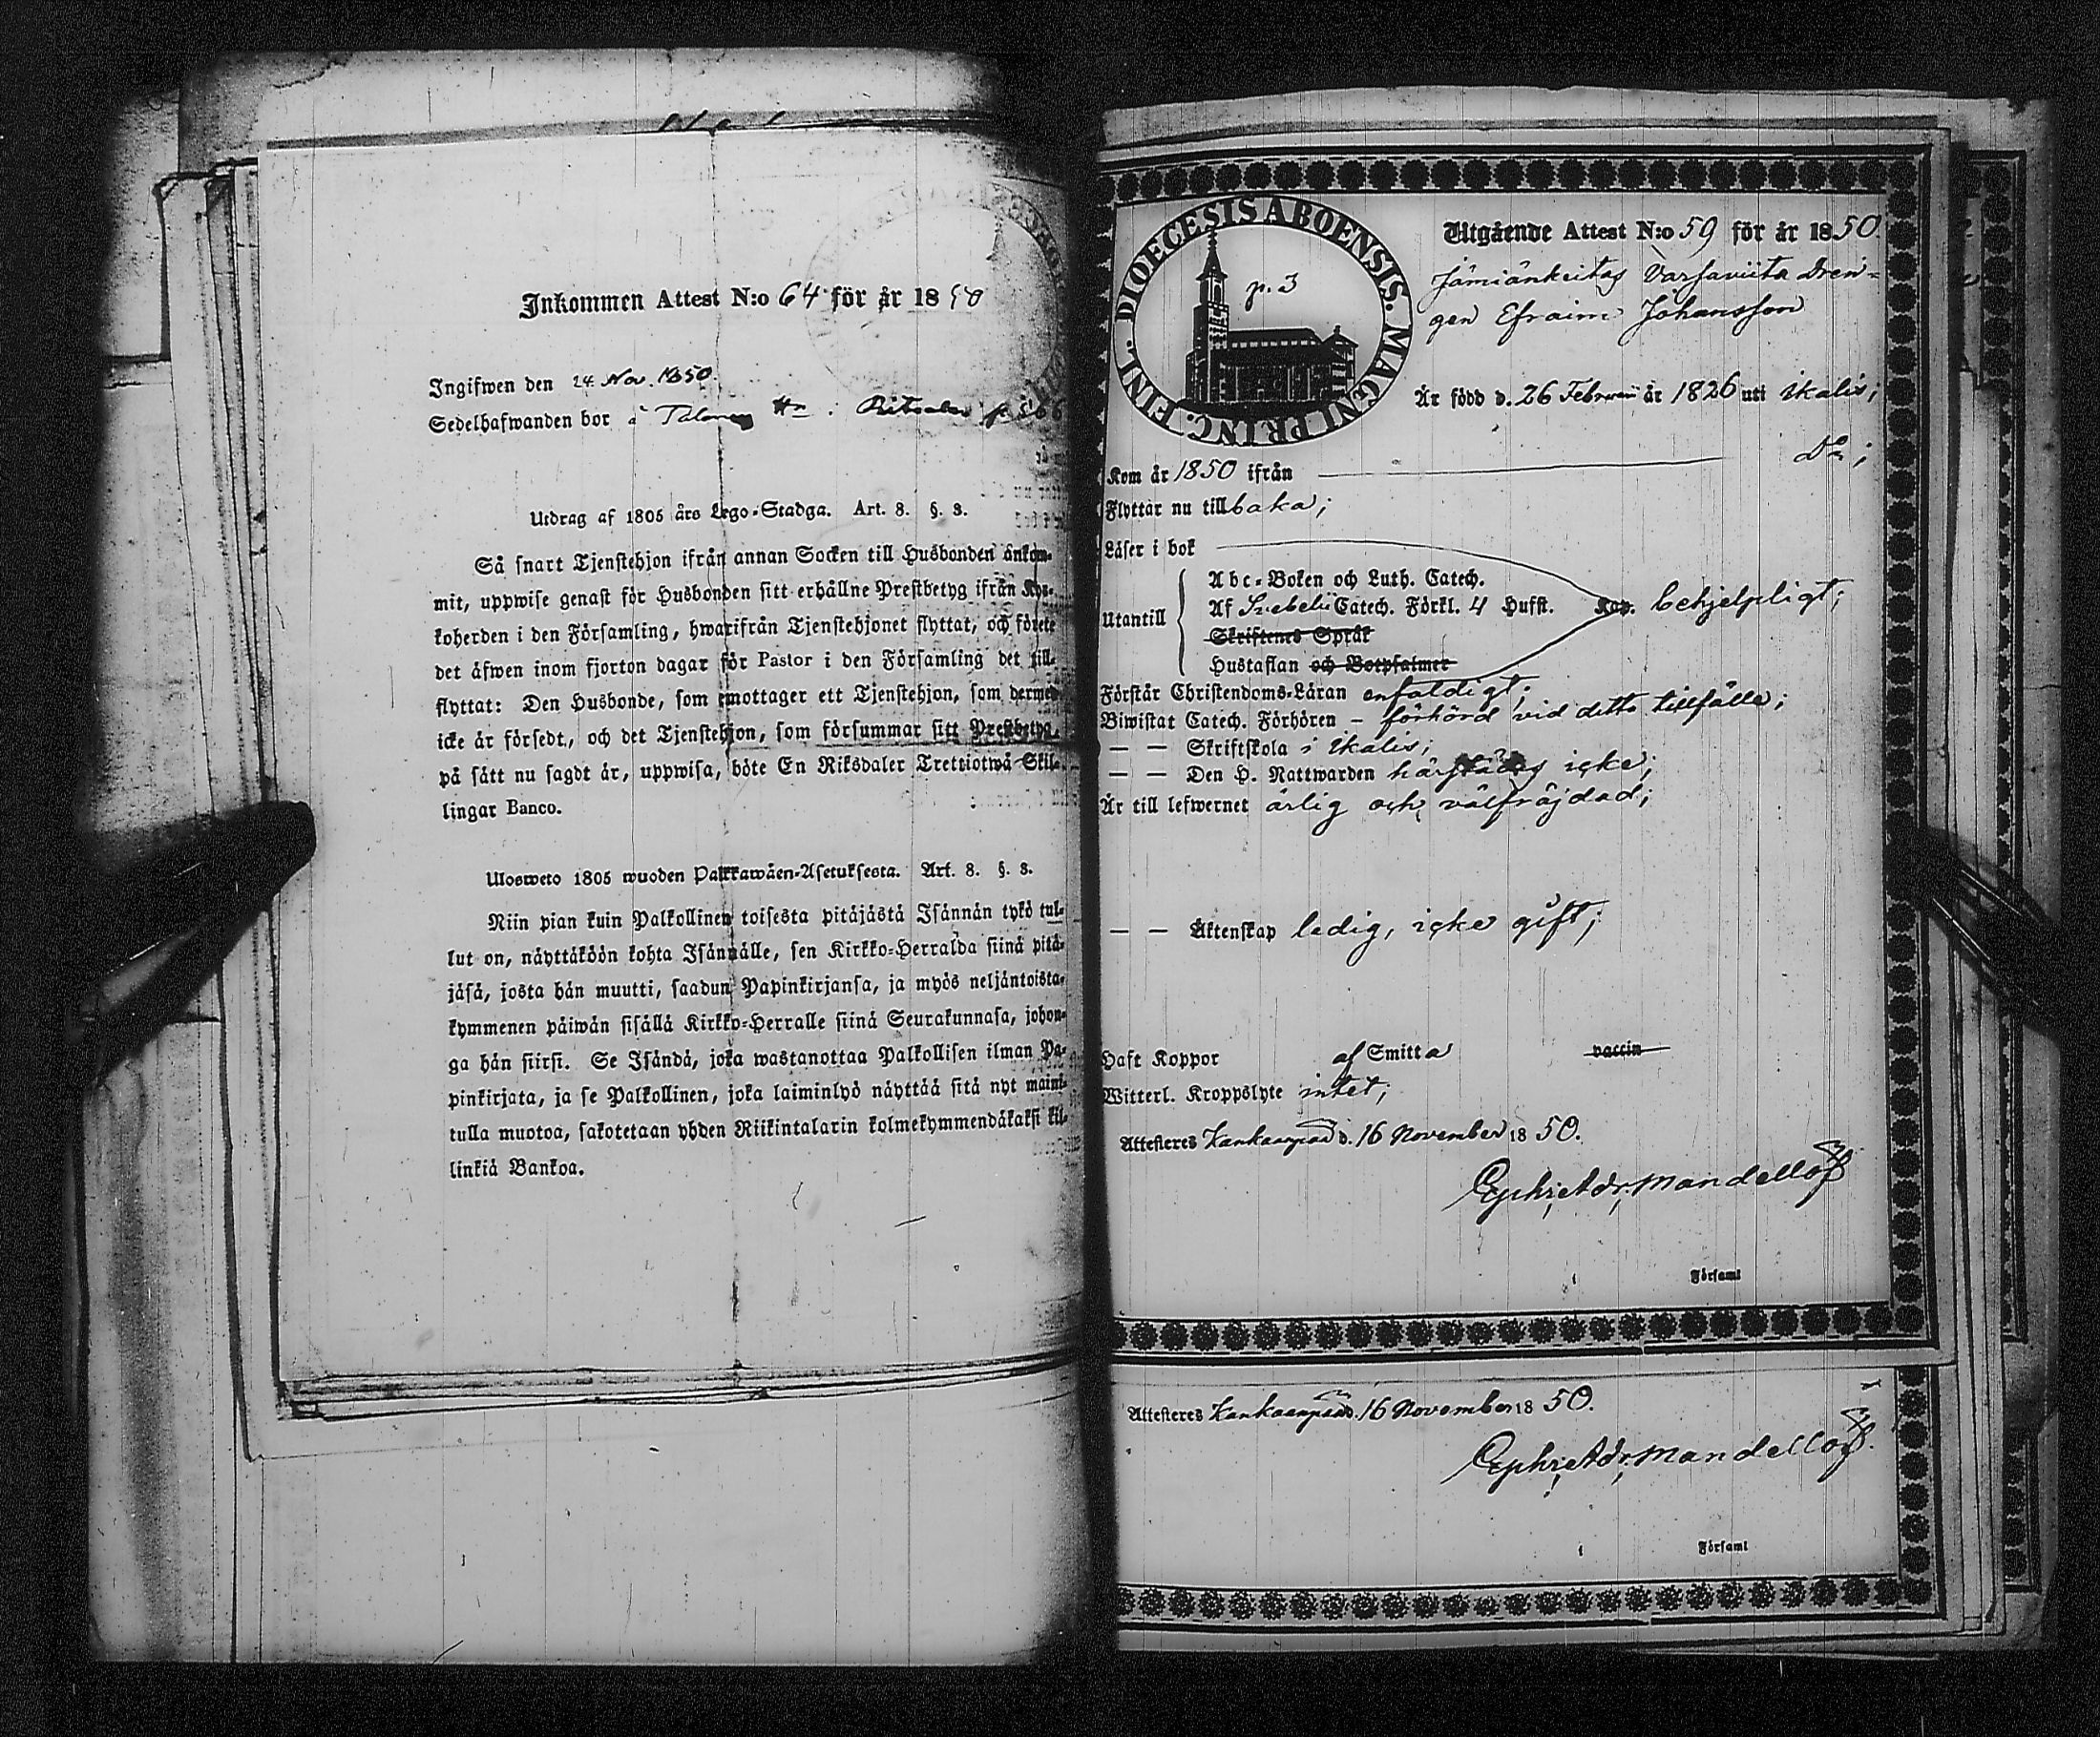 Inkommen Attest N:o 64 för år 1850
Ingifwen den 24 Nov. 1850.
Sedelhafwanden bor å
Utdrag af 1805 års Lego-Stadga. Art. 8. §. 8.
Så snart Tjenstehjon ifrån annan Socken till Husbonden ankom-
mit, uppwise genast för Husbonden sitt erhållne Prestbetyg ifrån Kyr-
koherden i den Församling, hwarifrån Tjenstehjonet flyttat, och förete
det äfwen inom fjorton dagar för Pastor i den Församling det till-
flyttat: Den Husbonde, som emottager ett Tjenstehjon, som dermed
icke är försedt, och det Tjenstehjon, som försummar sitt Prestbetyg,
på sätt nu sagdt är, uppwisa, böte En Riksdaler Trettiotwå Skil-
lingar Banco.
Ulosweto 1805 wuoden Palkkawäen-Asetuksesta. Art. 8. §. 8.
Niin pian kuin Palkollinen toisesta pitäjästä Isännän tykö tul-
lut on, näyttäköön kohta Isännälle, sen Kirkko-Herralda siinä pitä-
jäsä, josta hän muutti, saadun Papinkirjansa, ja myös neljäntoista-
kymmenen päiwän sisällä Kirkko-Herralle siinä Seurakunnasa, johon-
ga hän siirsi. Se Isändä, joka wastanottaa Palkollisen ilman Pa-
pinkirjata, ja se Palkollinen, joka laiminlyö näyttää sitä nyt maini-
tulla muotoa, sakotetaan yhden Riikintalarin kolmekymmendäkaksi kil-
linkiä Bankoa.
DIOECESIS ABOENSIS. MAGNI PRINC. FINL.
p. 3
Utgående Attest N:o 59 för år 1850.
Jämiänkeitas Varsaviita Dren-
gen Efraim Johansson
Är född d. 26 Februarii år 1826 uti Ikalis;
Kom år 1850 ifrån D:o;
Flyttar nu tillbaka;
Läser i bok
Abc-Boken och Luth. Catech.
Utantill Af Svebelii Catech. Förkl. 4 Hufst. Kap. behjelpligt;
Skriftenes Språk
Hustaflan och Botpsalmer
Förstår Christendoms-Läran enfaldigt;
Biwistat Catech. Förhören – förhörd vid detta tillfälle;
— — Skriftskola i Ikalis;
— — Den H. Nattwarden härstädes icke;
Är till lefwernet ärlig och välfräjdad;
— — Äktenskap ledig, icke gift;
Haft Koppor af Smitta vaccin
Witterl. Kroppslyte intet;
Attesteres Kankaanpää d. 16 November 1850.
Ephr. Adr. Mandellöf
i Församl
Attesteres Kankaanpää d. 16 November 1850.
Ephr. Adr. Mandellöf.
i Församl